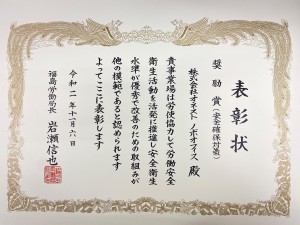 表彰状
奨励賞(安全確保対策)
株式会社オネスト ノボオフィス 殿
貴事業場は労使協力して労働安全
衛生活動を活発に推進し安全衛生
水準が優秀で改善のための取組みが
他の模範であると認められます
よってここに表彰します
令和二年十二月六日
福島労働局長 岩瀬信也